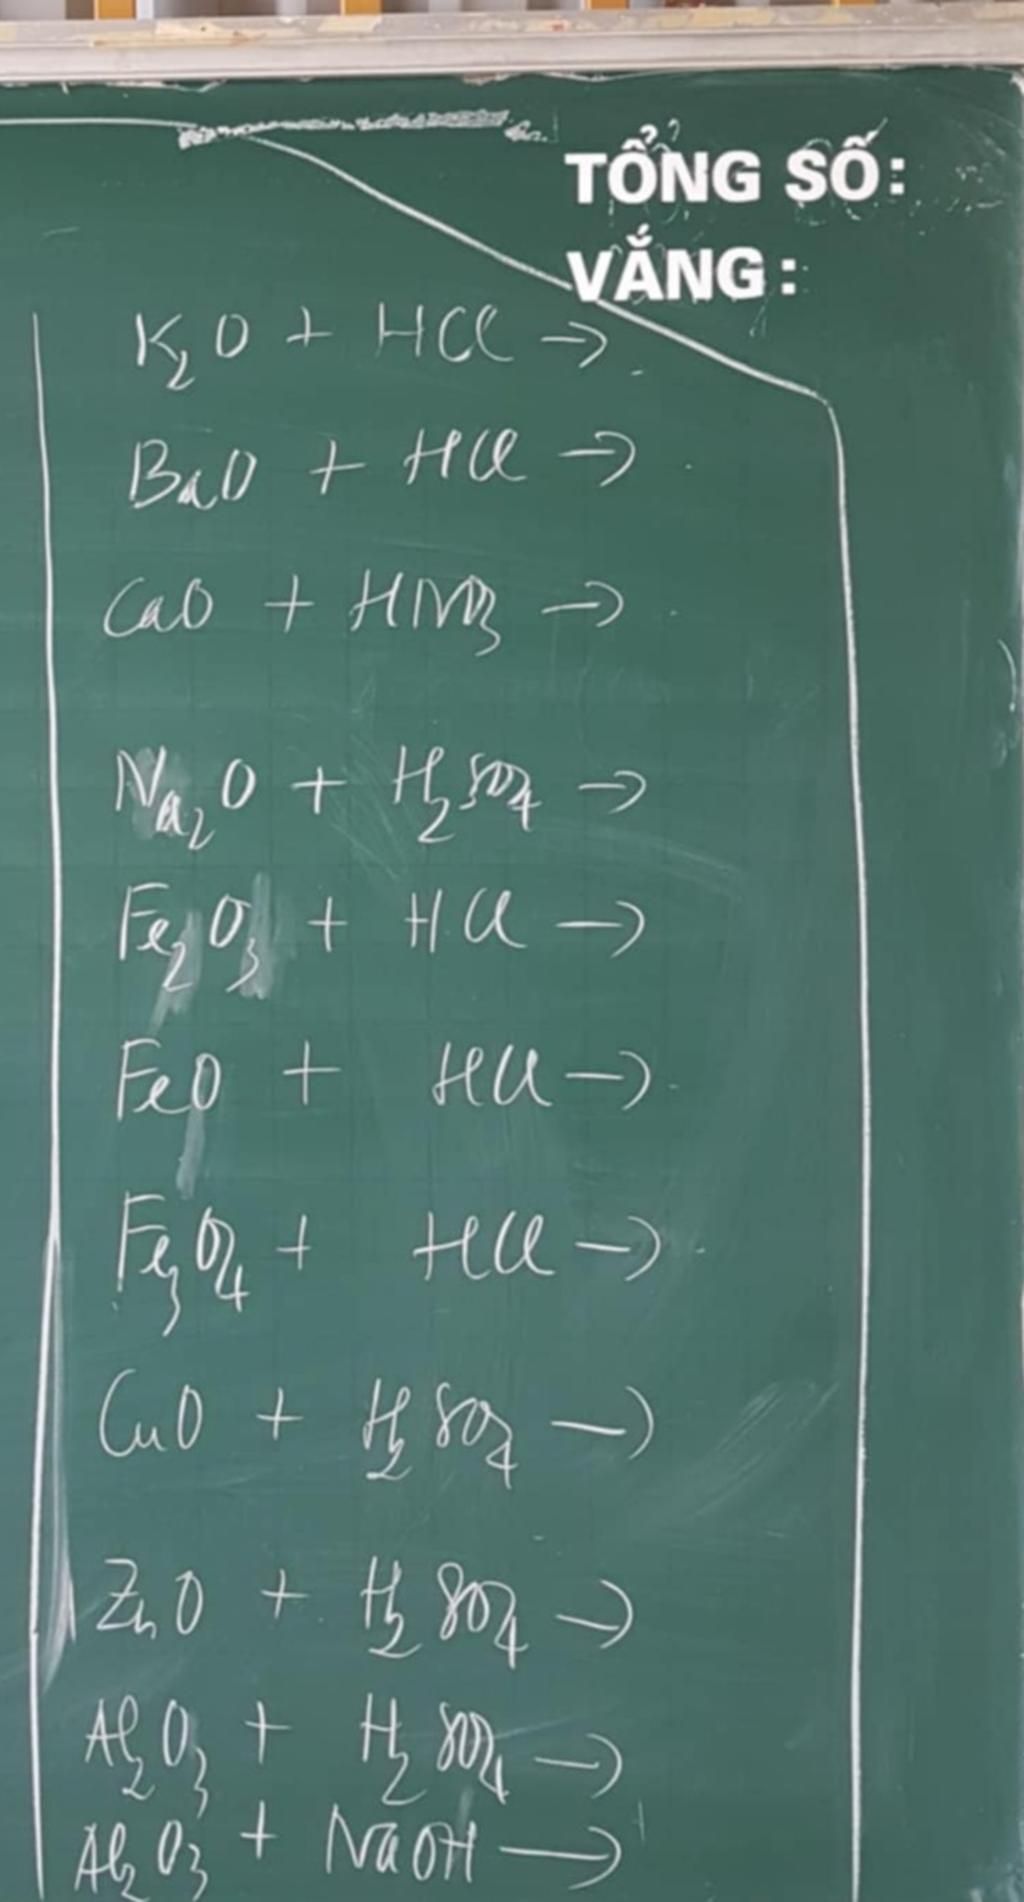 TỔNG SỐ:
VẮNG:
K₂O + HCl →
BaO + HCl →
CaO + HNO₃ →
Na₂O + H₂SO₄ →
Fe₂O₃ + HCl →
FeO + HCl →
Fe₃O₄ + HCl →
CuO + H₂SO₄ →
ZnO + H₂SO₄ →
Al₂O₃ + H₂SO₄ →
Al₂O₃ + NaOH →